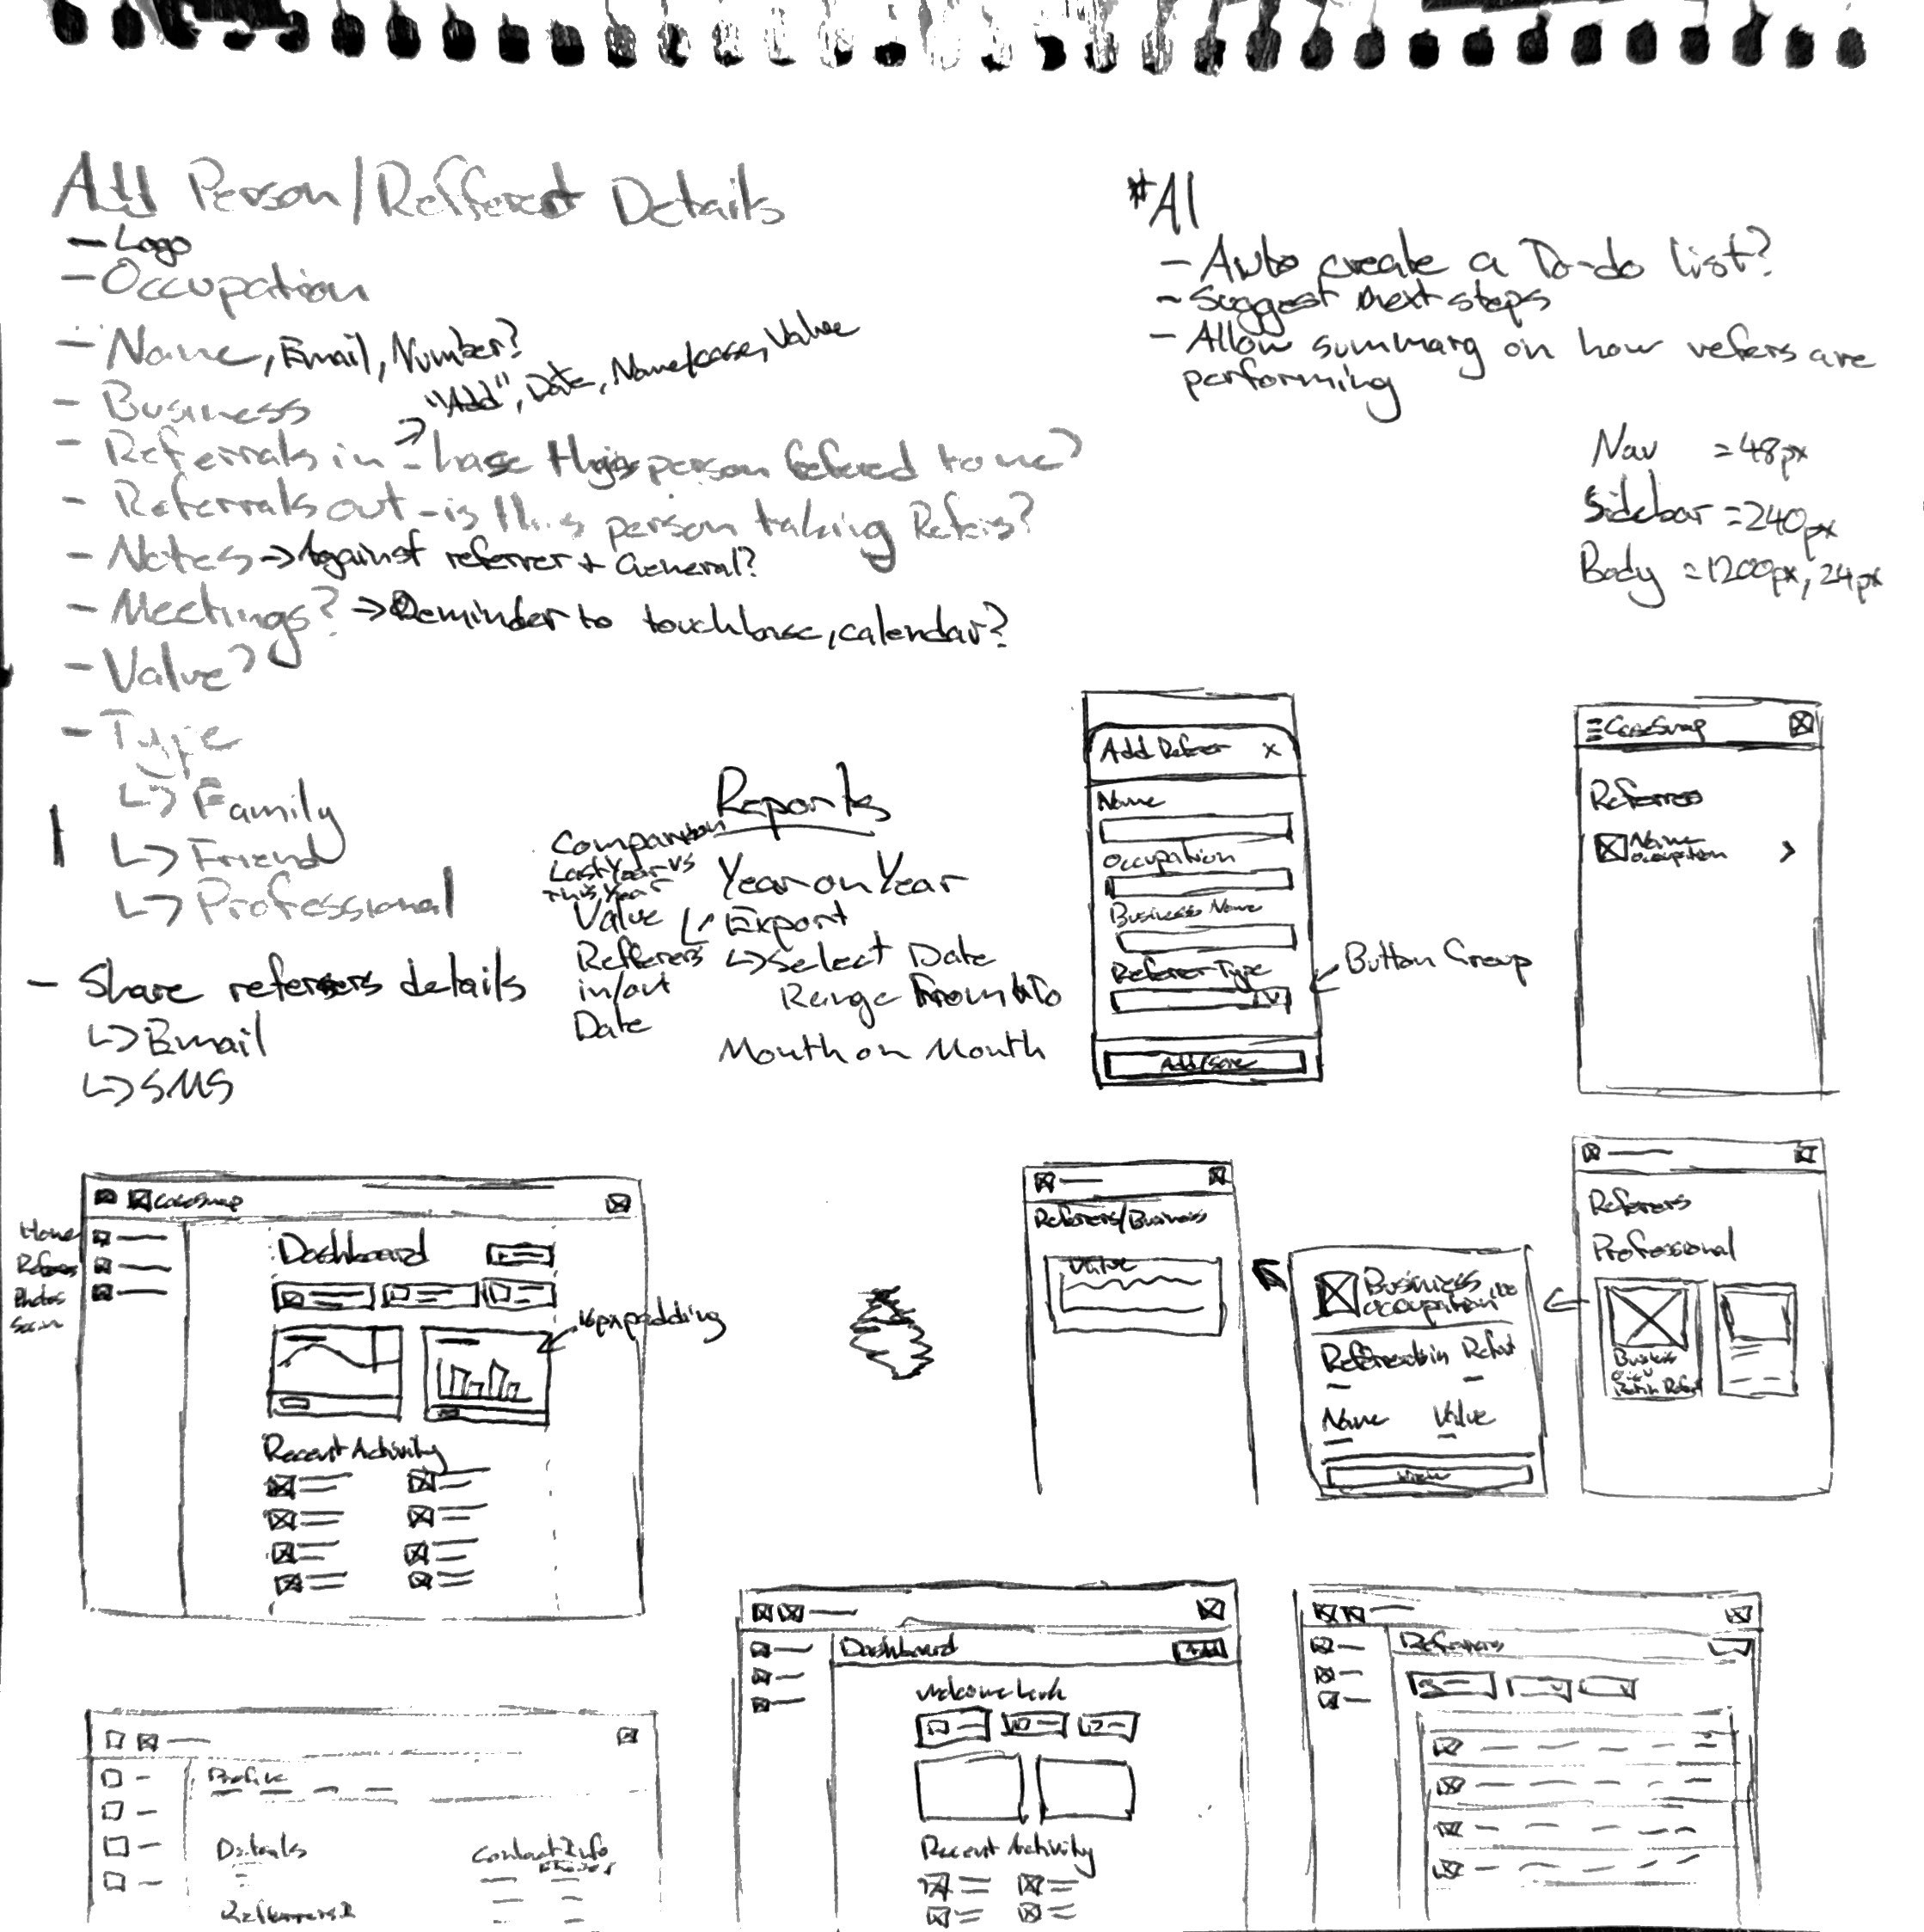 Add Person/Refferest Details
- Logo
- Occupation
- Name, Email, Number?
- Business
→ "Add", Date, Name/case, Value
- Referrals in - has this person refered to me?
- Referrals out - is this person taking Refers?
- Notes → Against referrer + General?
- Meetings? → Reminder to touchbase, calendar?
- Value?
- Type
↳ Family
↳ Friend
↳ Professional
- Share referrers details
↳ Email
↳ SMS
*AI
- Auto create a To-do list?
- Suggest next steps
- Allow summary on how refers are
performing
Nav = 48px
Sidebar = 240px
Body = 1200px, 24px
Reports
Comparison
Last Year vs
this Year
Value
Refferers
in/out
Date
Year on Year
Export
↳ Select Date
Range From to
Month on Month
Add Referer x
Name
Occupation
Business Name
Referrer Type
Add/Save
Button Group
CaseSwap
Name
Occupation
CaseSwap
Home
Referers
Dashboard
padding
Recent Activity
Referers/Business
Value
Business
occupation
Name Value
View
Referrers
Professional
Business
Dashboard
Add
Welcome back
Recent Activity
Referrers
Profile
Details
Contact Info